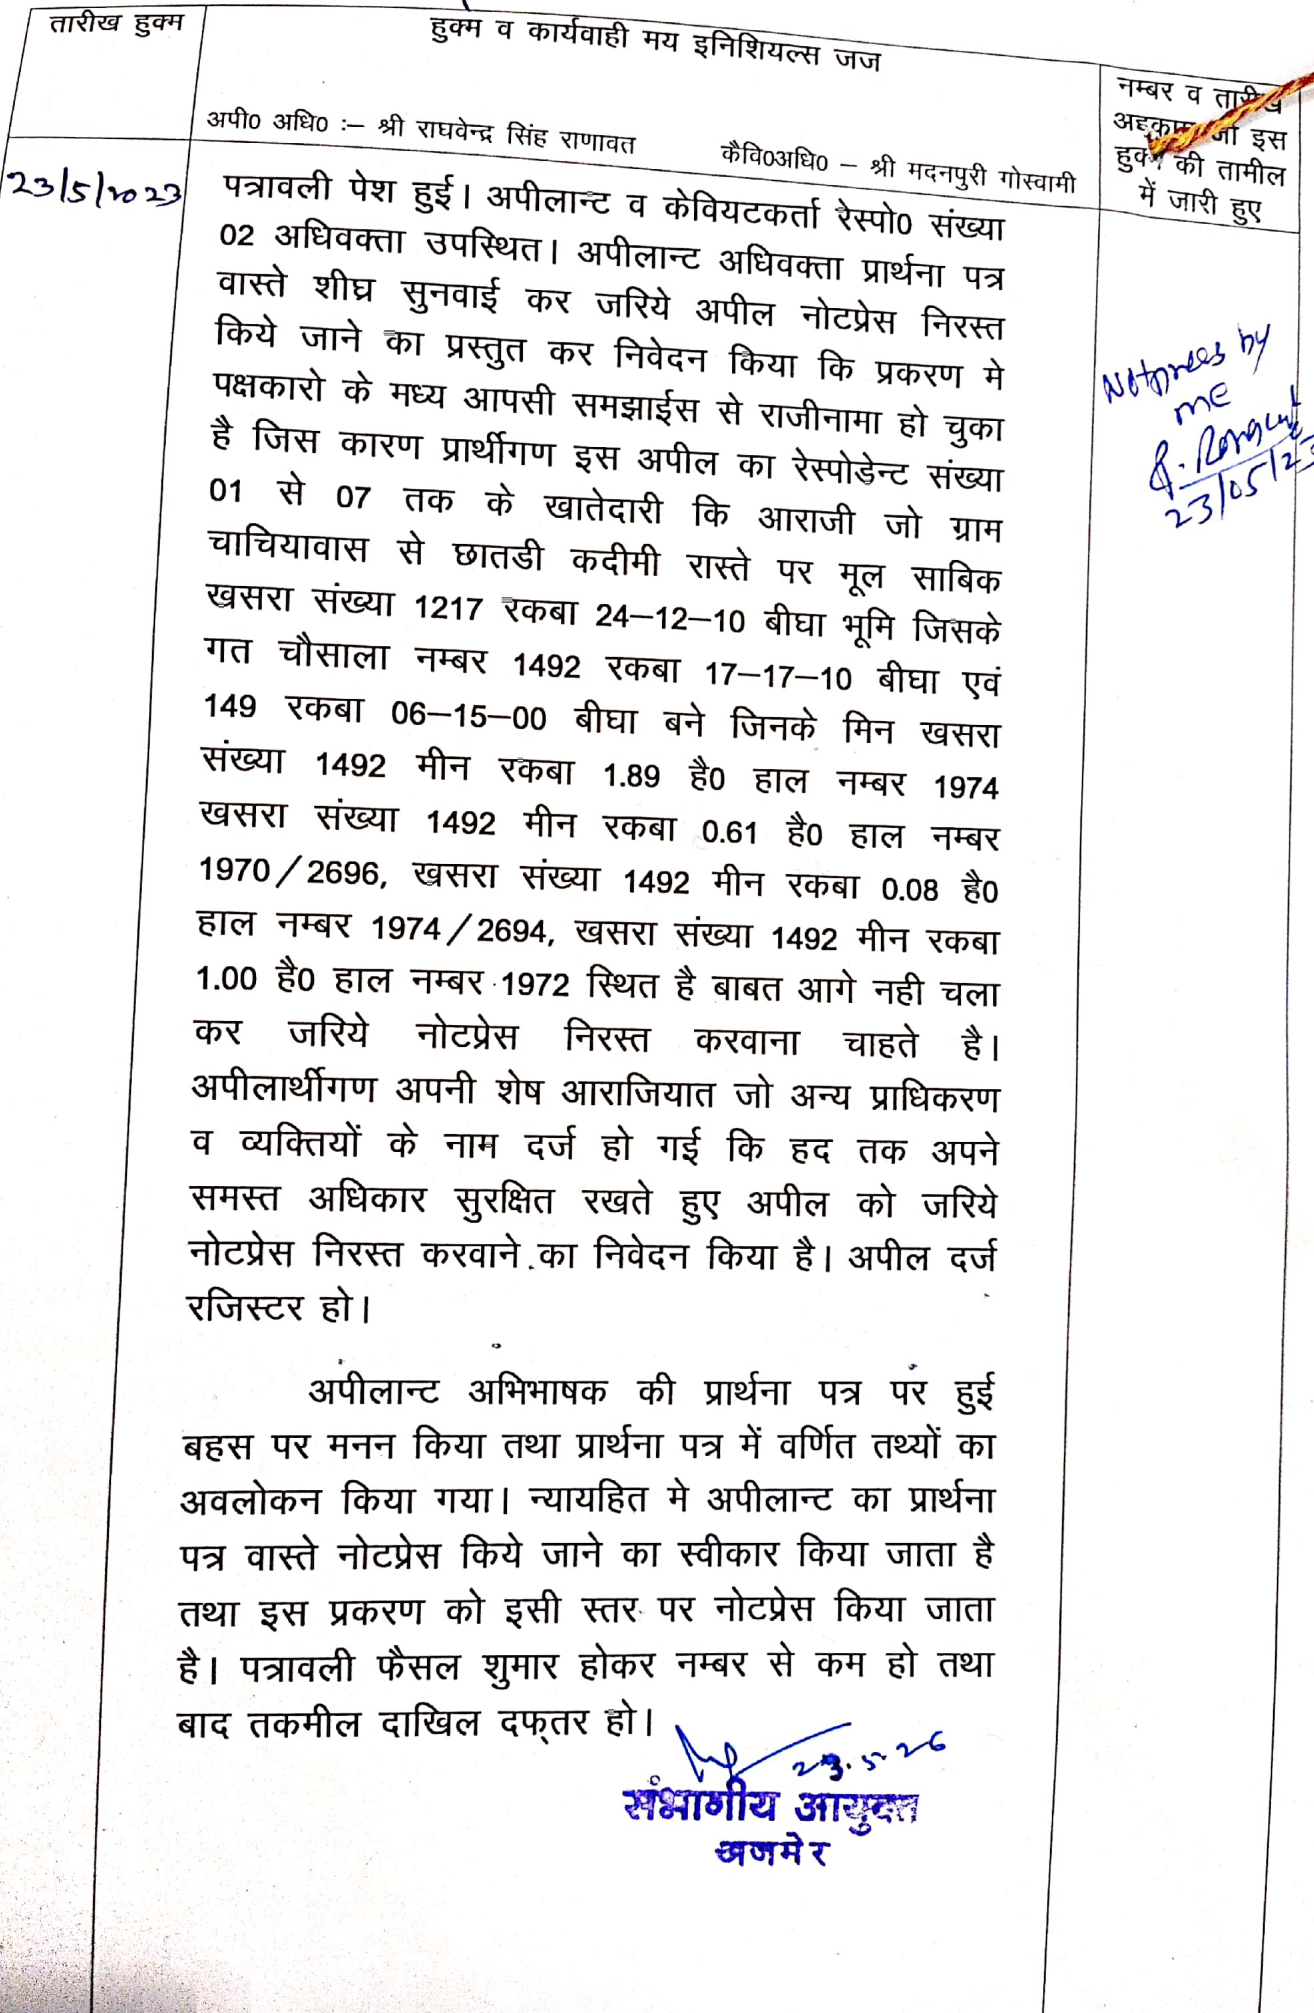 तारीख हुक्म
हुक्म व कार्यवाही मय इनिशियल्स जज
नम्बर व तारीख
अहकाम जो इस
हुक्म की तामील
में जारी हुए
अपी0 अधि0 :– श्री राघवेन्द्र सिंह राणावत कैवि0अधि0 – श्री मदनपुरी गोस्वामी
23/5/2023
पत्रावली पेश हुई। अपीलान्ट व केवियटकर्ता रेस्पो0 संख्या
02 अधिवक्ता उपस्थित। अपीलान्ट अधिवक्ता प्रार्थना पत्र
वास्ते शीघ्र सुनवाई कर जरिये अपील नोटप्रेस निरस्त
किये जाने का प्रस्तुत कर निवेदन किया कि प्रकरण मे
पक्षकारो के मध्य आपसी समझाईस से राजीनामा हो चुका
है जिस कारण प्रार्थीगण इस अपील का रेस्पोडेन्ट संख्या
01 से 07 तक के खातेदारी कि आराजी जो ग्राम
चाचियावास से छातडी कदीमी रास्ते पर मूल साबिक
खसरा संख्या 1217 रकबा 24–12–10 बीघा भूमि जिसके
गत चौसाला नम्बर 1492 रकबा 17–17–10 बीघा एवं
149 रकबा 06–15–00 बीघा बने जिनके मिन खसरा
संख्या 1492 मीन रकबा 1.89 है0 हाल नम्बर 1974
खसरा संख्या 1492 मीन रकबा 0.61 है0 हाल नम्बर
1970/2696, खसरा संख्या 1492 मीन रकबा 0.08 है0
हाल नम्बर 1974/2694, खसरा संख्या 1492 मीन रकबा
1.00 है0 हाल नम्बर 1972 स्थित है बाबत आगे नही चला
कर जरिये नोटप्रेस निरस्त करवाना चाहते है।
अपीलार्थीगण अपनी शेष आराजियात जो अन्य प्राधिकरण
व व्यक्तियों के नाम दर्ज हो गई कि हद तक अपने
समस्त अधिकार सुरक्षित रखते हुए अपील को जरिये
नोटप्रेस निरस्त करवाने का निवेदन किया है। अपील दर्ज
रजिस्टर हो।
अपीलान्ट अभिभाषक की प्रार्थना पत्र पर हुई
बहस पर मनन किया तथा प्रार्थना पत्र में वर्णित तथ्यों का
अवलोकन किया गया। न्यायहित मे अपीलान्ट का प्रार्थना
पत्र वास्ते नोटप्रेस किये जाने का स्वीकार किया जाता है
तथा इस प्रकरण को इसी स्तर पर नोटप्रेस किया जाता
है। पत्रावली फैसल शुमार होकर नम्बर से कम हो तथा
बाद तकमील दाखिल दफ्तर हो।
संभागीय आयुक्त
अजमेर
Notpress by
me
23/05/23